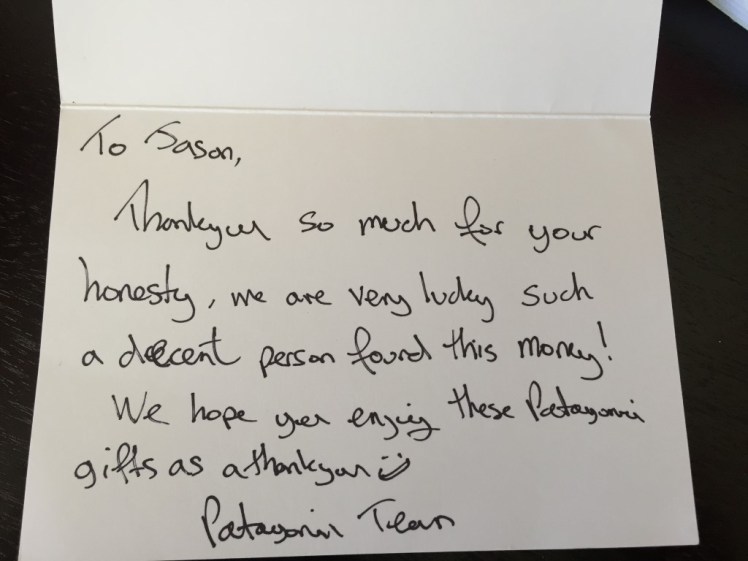 To Jason,
Thankyou so much for your
honesty, we are very lucky such
a decent person found this money!
We hope you enjoy these Patagonia
gifts as a thankyou
Patagonia Team